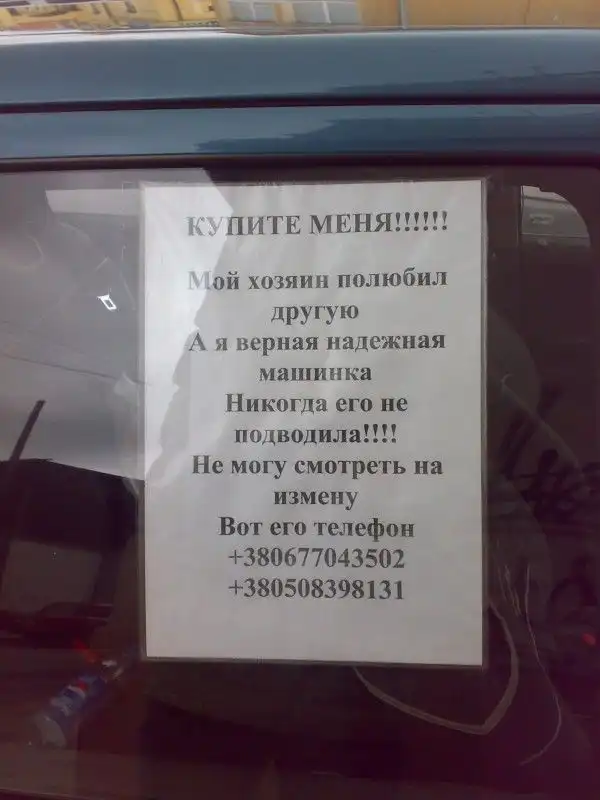 КУПИТЕ МЕНЯ!!!!!!
Мой хозяин полюбил
другую
А я верная надежная
машинка
Никогда его не
подводила!!!!
Не могу смотреть на
измену
Вот его телефон
+380677043502
+380508398131